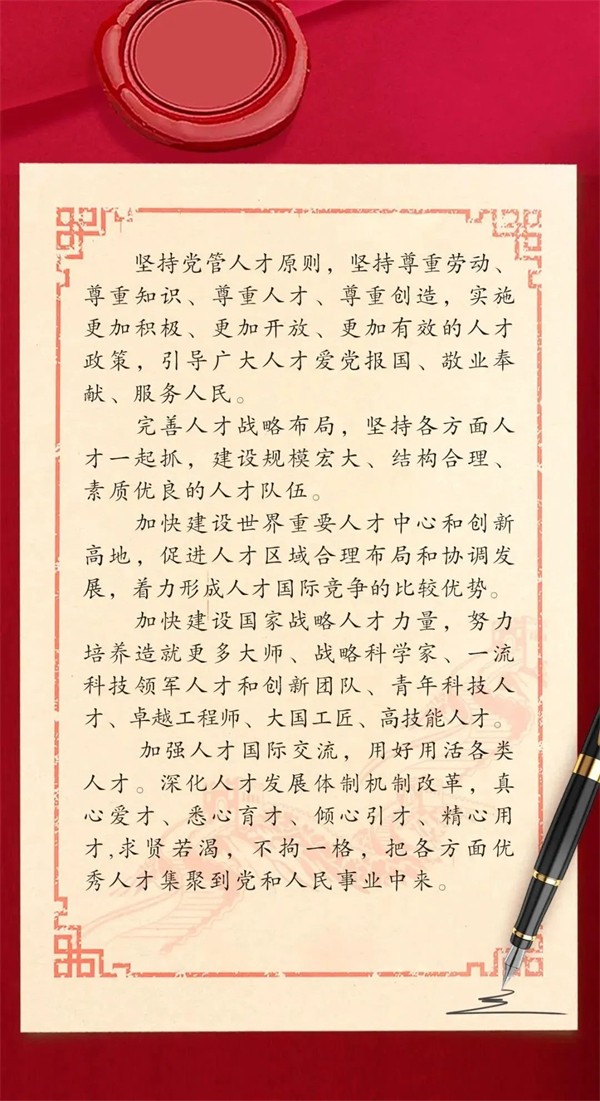 坚持党管人才原则，坚持尊重劳动、
尊重知识、尊重人才、尊重创造，实施
更加积极、更加开放、更加有效的人才
政策，引导广大人才爱党报国、敬业奉
献、服务人民。
完善人才战略布局，坚持各方面人
才一起抓，建设规模宏大、结构合理、
素质优良的人才队伍。
加快建设世界重要人才中心和创新
高地，促进人才区域合理布局和协调发
展，着力形成人才国际竞争的比较优势。
加快建设国家战略人才力量，努力
培养造就更多大师、战略科学家、一流
科技领军人才和创新团队、青年科技人
才、卓越工程师、大国工匠、高技能人才。
加强人才国际交流，用好用活各类
人才。深化人才发展体制机制改革，真
心爱才、悉心育才、倾心引才、精心用
才,求贤若渴，不拘一格，把各方面优
秀人才集聚到党和人民事业中来。